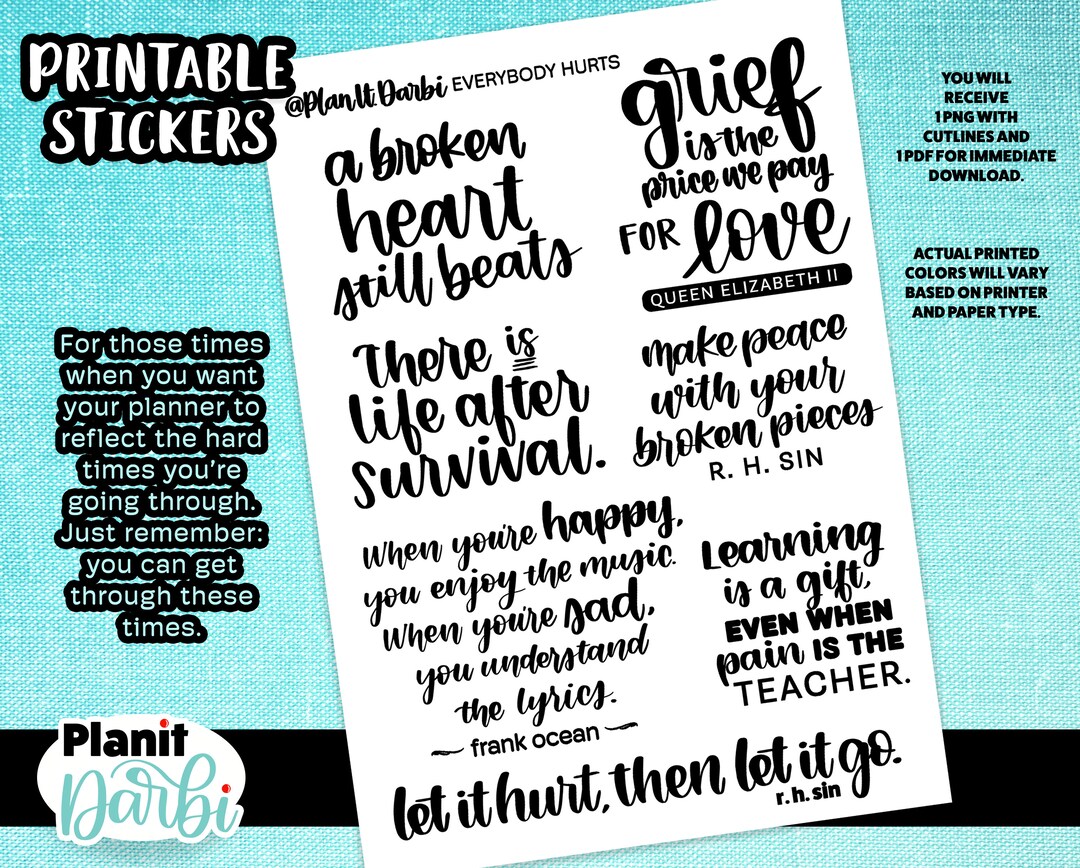 PRINTABLE
STICKERS
For those times
when you want
your planner to
reflect the hard
times you're
going through.
Just remember:
you can get
through these
times.
Planit
Darbi
@PlanIt.Darbi EVERYBODY HURTS
a broken
heart
still beats
grief
is the
price we pay
FOR love
QUEEN ELIZABETH II
There is
life after
survival.
make peace
with your
broken pieces
R. H. SIN
When you're happy,
you enjoy the music.
When you're sad,
you understand
the lyrics.
frank ocean
Learning
is a gift,
EVEN WHEN
pain IS THE
TEACHER.
let it hurt, then let it go.
r.h.sin
YOU WILL
RECEIVE
1 PNG WITH
CUTLINES AND
1 PDF FOR IMMEDIATE
DOWNLOAD.
ACTUAL PRINTED
COLORS WILL VARY
BASED ON PRINTER
AND PAPER TYPE.